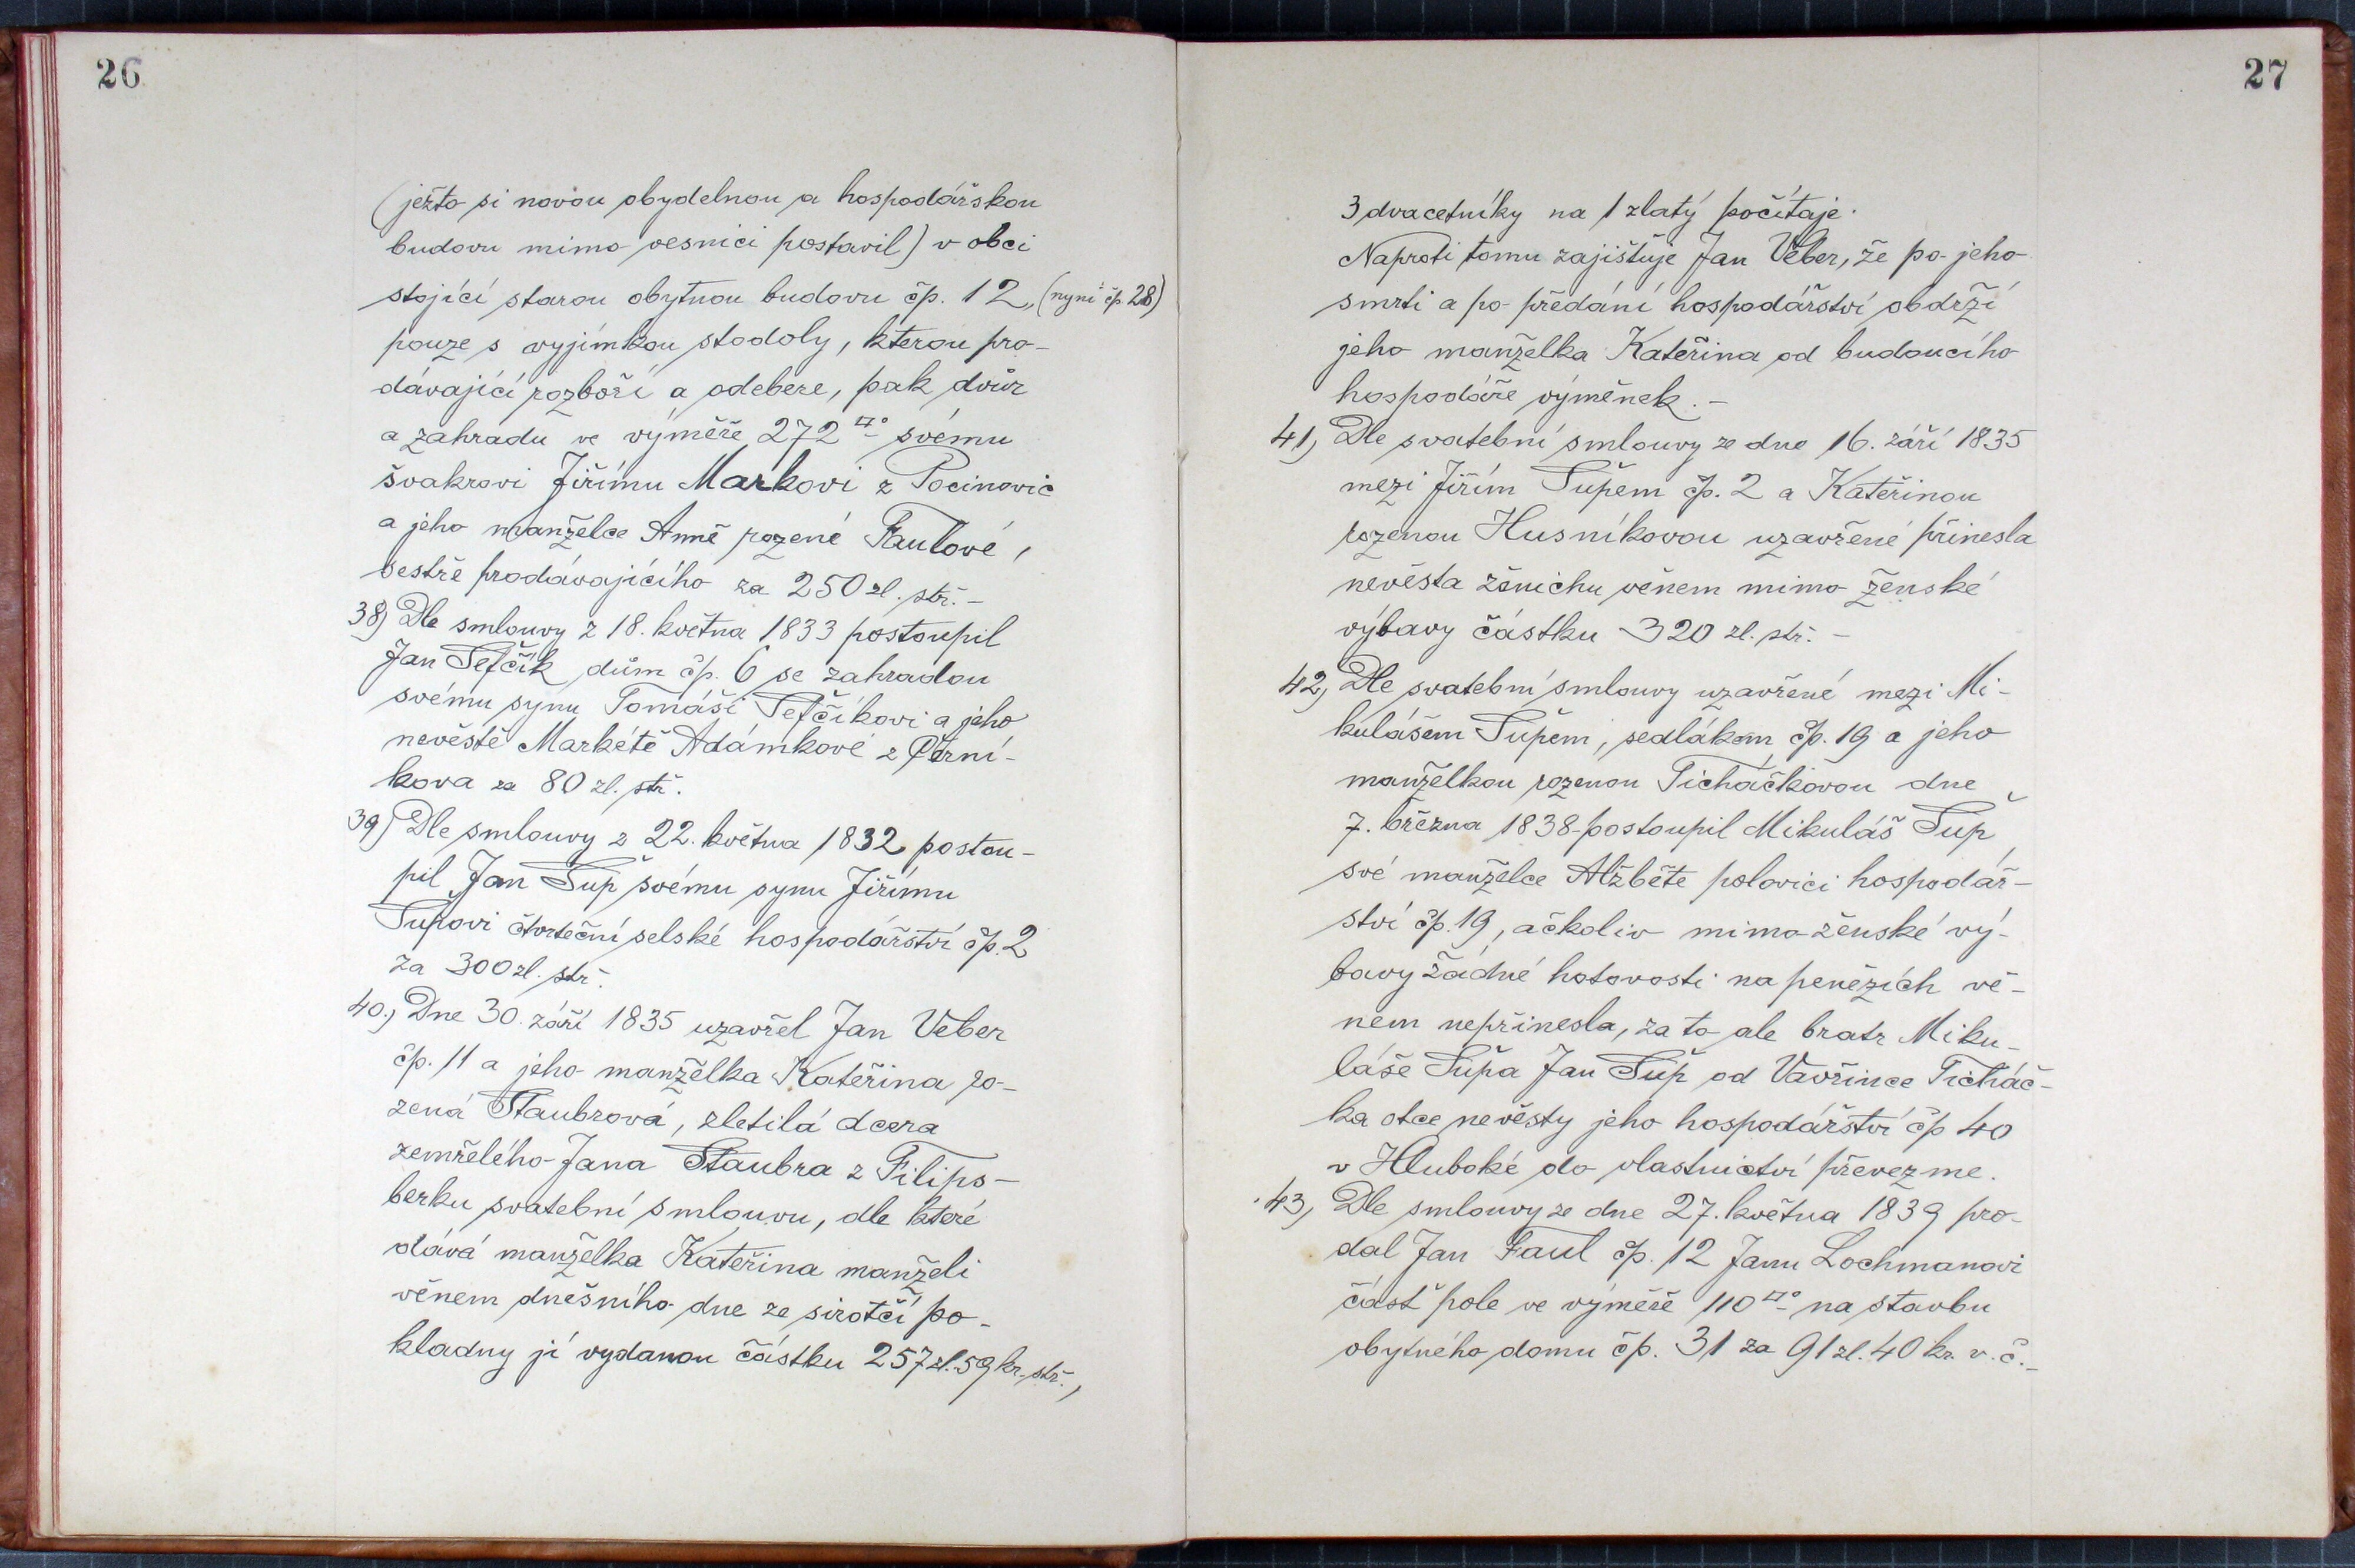 26
(ježto si novou obydelnou a hospodářskou
budovu mimo vesnici postavil) v obci
stojící starou obytnou budovu čp. 12, (nyní čp. 28)
pouze s vyjímkou stodoly, kterou pro-
dávající rozboří a odebere, pak dvůr
a zahradu ve výměře 272 □° svému
švakrovi Jiřímu Markovi z Pocinovic
a jeho manželce Anně rozené Faulové,
sestře prodávajícího za 250 zl. stř. -
38) Dle smlouvy z 18. května 1833 postoupil
Jan Tefčík dům čp. 6 se zahradou
svému synu Tomáši Tefčíkovi a jeho
nevěstě Markétě Adámkové z Černí-
kova za 80 zl. stř.
39) Dle smlouvy z 22. května 1832 postou-
pil Jan Šup svému synu Jiřímu
Šupovi čtvrteční selské hospodářství čp. 2
za 300 zl. stř.
40.) Dne 30. září 1835 uzavřel Jan Veber
čp. 11 a jeho manželka Kateřina ro-
zená Staubrová, zletilá dcera
zemřelého Jana Staubra z Filips-
berku svatební smlouvu, dle které
dává manželka Kateřina manželi
věnem dnešního dne ze sirotčí po-
kladny jí vydanou částku 257 zl. 59 kr. stř.,
27
3 dvacetníky na 1 zlatý počítaje.
Naproti tomu zajišťuje Jan Veber, že po jeho
smrti a po předání hospodářství obdrží
jeho manželka Kateřina od budoucího
hospodáře výměnek. -
41) Dle svatební smlouvy ze dne 16. září 1835
mezi Jiřím Šupem čp. 2 a Kateřinou
rozenou Husníkovou uzavřené přinesla
nevěsta ženichu věnem mimo ženské
výbavy částku 320 zl. stř. -
42) Dle svatební smlouvy uzavřené mezi Mi-
kulášem Šupem, sedlákem čp. 19 a jeho
manželkou rozenou Ticháčkovou dne
7. března 1838 postoupil Mikuláš Šup
své manželce Alžbětě polovici hospodář-
ství čp. 19, ačkoliv mimo ženské vý-
bavy žádné hotovosti na penězích vě-
nem nepřinesla, za to ale bratr Miku-
láše Šupa Jan Šup od Vavřince Ticháč-
ka otce nevěsty jeho hospodářství čp 40
v Hluboké do vlastnictví převezme.
43) Dle smlouvy ze dne 27. května 1839 pro-
dal Jan Faul čp. 12 Janu Lochmanovi
část pole ve výměře 110 □° na stavbu
obytného domu čp. 31 za 91 zl. 40 kr. v. č. -